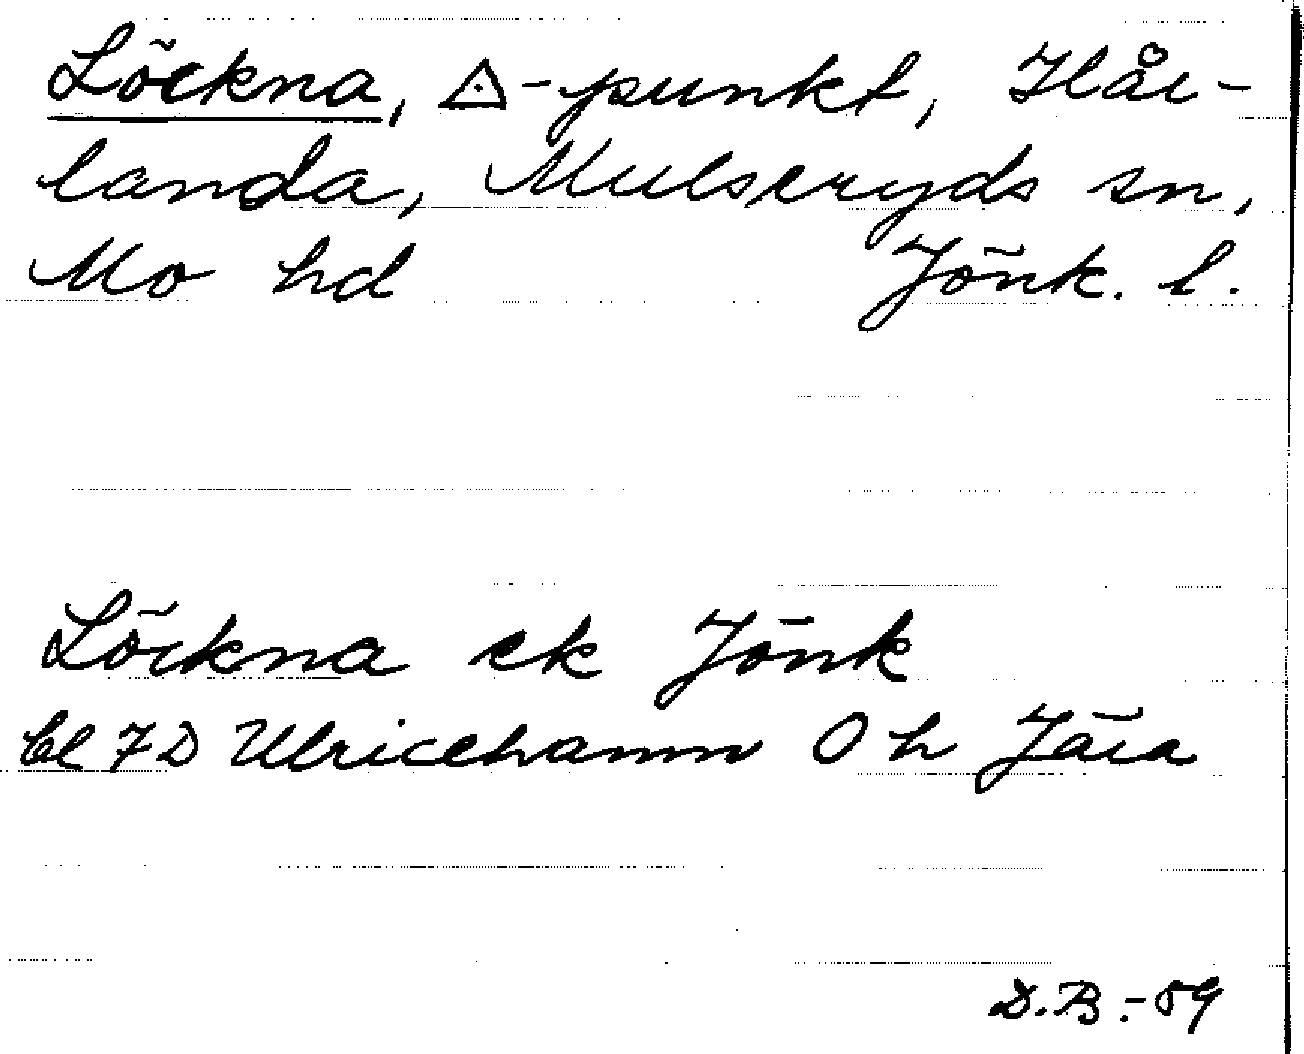 Löckna, △-punkt, Hår-
landa, Mulseryds sn,
Mo hd Jönk. l.
Löckna ek Jönk
bl 7D Ulricehamn O h Jära
D.B.-59